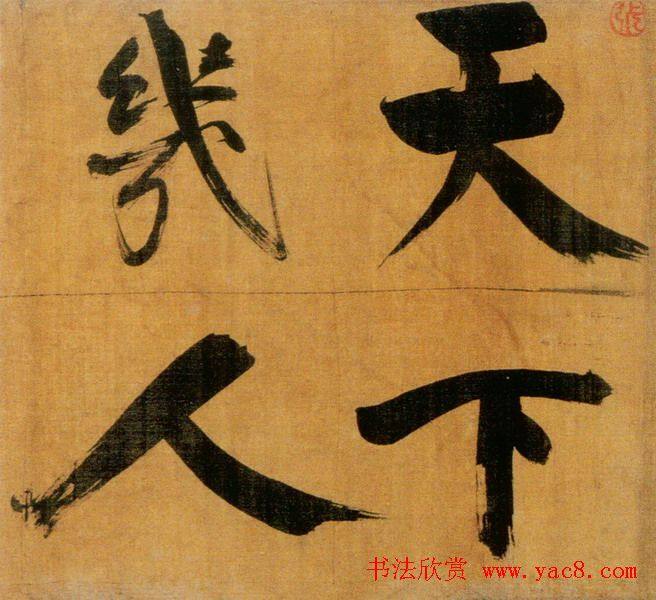 天下
幾人
书法欣赏 www.yac8.com